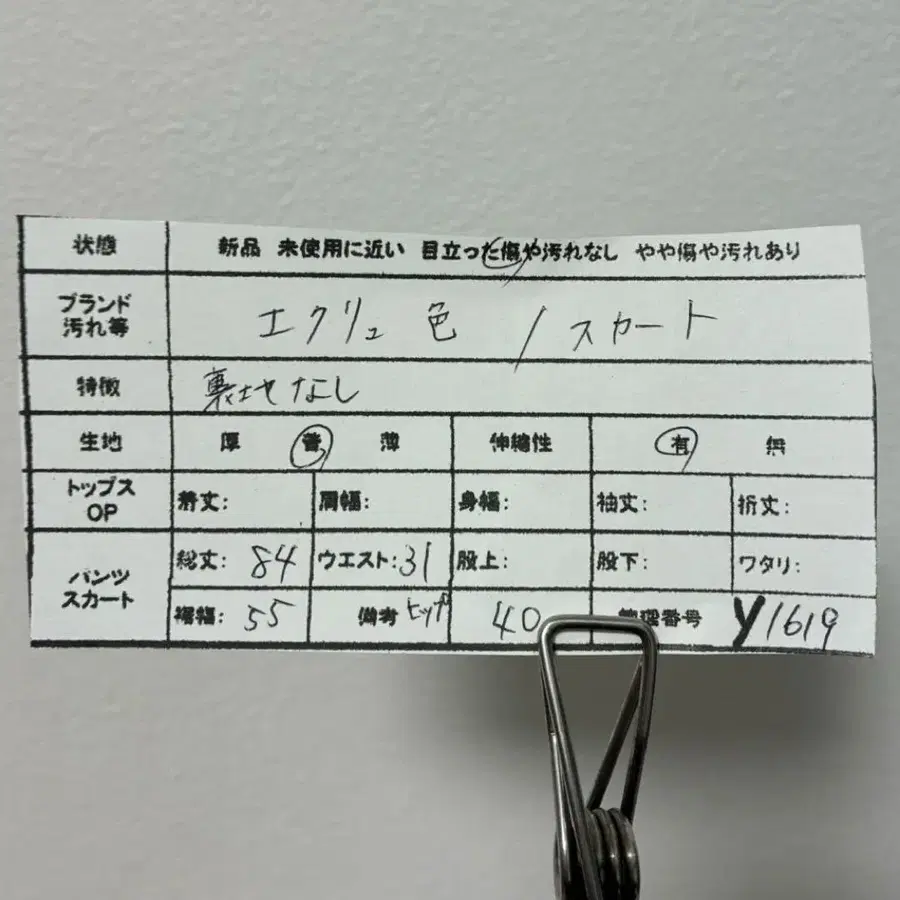 状態 新品 未使用に近い 目立った傷や汚れなし やや傷や汚れあり
ブランド
汚れ等
エクリュ色 / スカート
特徴 裏地なし
生地 厚 普 薄 伸縮性 有 無
トップス
OP
着丈: 肩幅: 身幅: 袖丈: 裄丈:
パンツ
スカート
総丈: 84 ウエスト: 31 股上: 股下: ワタリ:
裾幅: 55 備考 ヒップ 40 管理番号 y1619